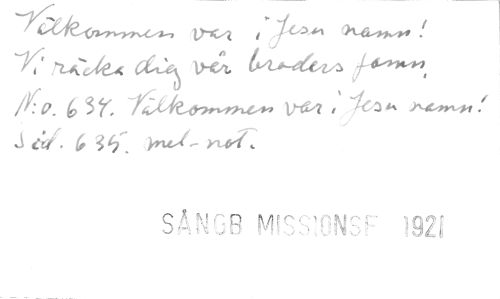 Välkommen var i Jesu namn!
Vi räcka dig vår broders famn,
N:o. 634. Välkommen var i Jesu namn!
Sid. 635. mel-not.
SÅNGB MISSIONSF 1921